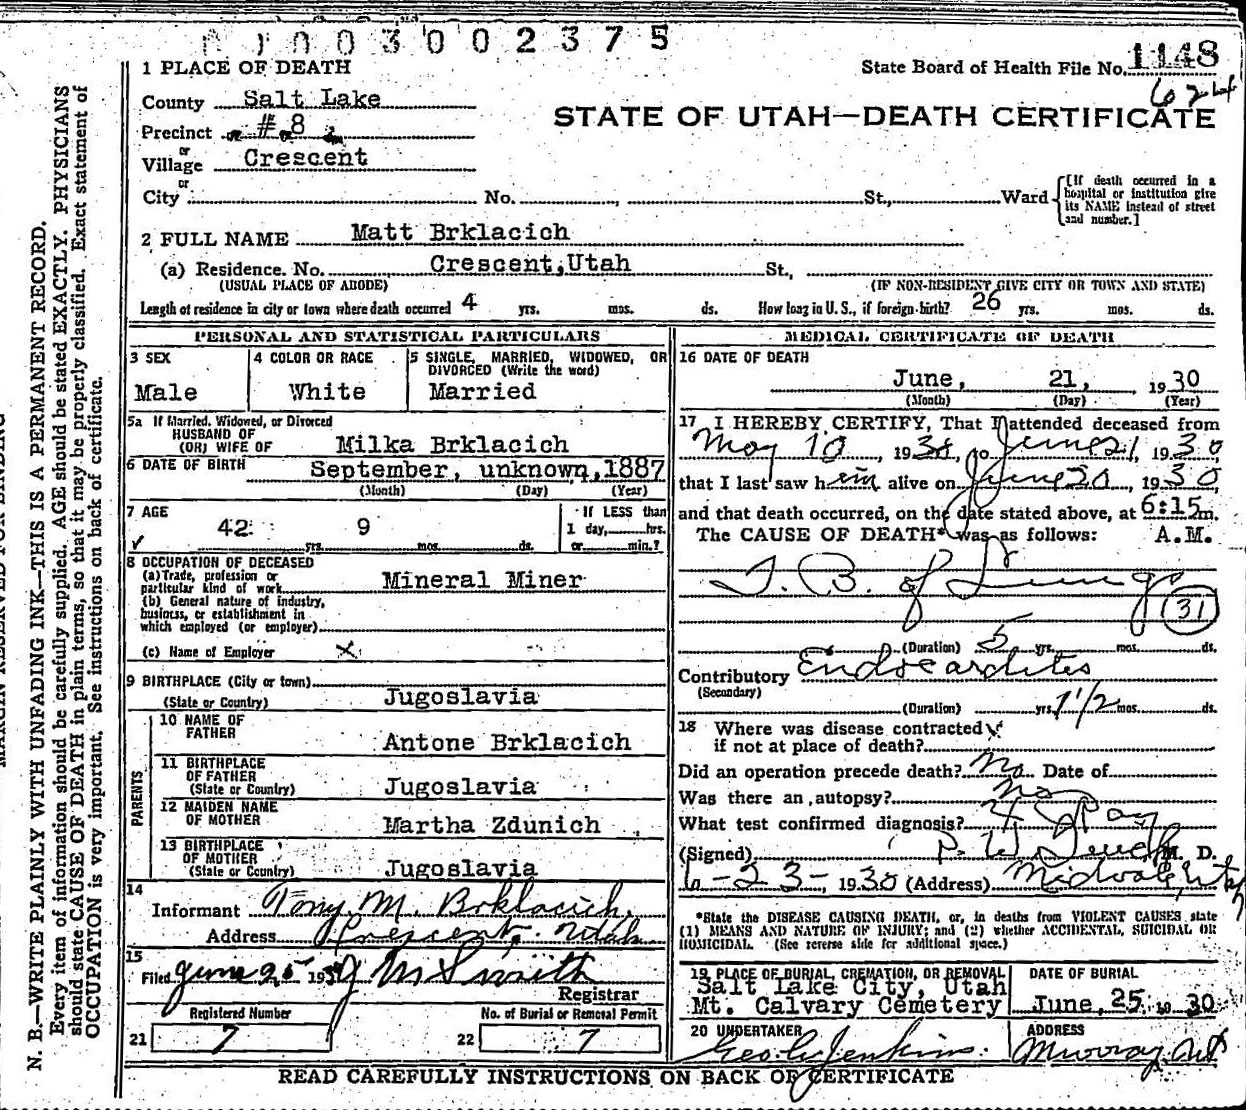 003002375
1 PLACE OF DEATH
State Board of Health File No. 1148
624
County Salt Lake
STATE OF UTAH—DEATH CERTIFICATE
Precinct #8
or
Village Crescent
or
City No. St., Ward
[If death occurred in a hospital or institution give its NAME instead of street and number.]
2 FULL NAME Matt Brklacich
(a) Residence. No. Crescent,Utah St.,
(USUAL PLACE OF ABODE) (IF NON-RESIDENT GIVE CITY OR TOWN AND STATE)
Length of residence in city or town where death occurred 4 yrs. mos. ds. How long in U. S., if foreign birth? 26 yrs. mos. ds.
PERSONAL AND STATISTICAL PARTICULARS
3 SEX
Male
4 COLOR OR RACE
White
5 SINGLE, MARRIED, WIDOWED, OR
DIVORCED (Write the word)
Married
5a If Married, Widowed, or Divorced
HUSBAND OF
(OR) WIFE OF Milka Brklacich
6 DATE OF BIRTH September, unknown, 1887
(Month) (Day) (Year)
7 AGE
42 yrs. 9 mos. ds.
If LESS than
1 day, hrs.
or min.?
8 OCCUPATION OF DECEASED
(a) Trade, profession or
particular kind of work Mineral Miner
(b) General nature of industry,
business, or establishment in
which employed (or employer)
(c) Name of Employer x
9 BIRTHPLACE (City or town)
(State or Country) Jugoslavia
PARENTS
10 NAME OF
FATHER Antone Brklacich
11 BIRTHPLACE
OF FATHER
(State or Country) Jugoslavia
12 MAIDEN NAME
OF MOTHER Martha Zdunich
13 BIRTHPLACE
OF MOTHER
(State or Country) Jugoslavia
14
Informant Tony M. Brklacich.
Address Crescent. Utah
15
Filed June 25 1930 J M Smith
Registrar
Registered Number
21 7
No. of Burial or Removal Permit
22 7
MEDICAL CERTIFICATE OF DEATH
16 DATE OF DEATH
June, 21, 1930
(Month) (Day) (Year)
17 I HEREBY CERTIFY, That I attended deceased from
May 10, 1930, to June 21, 1930
that I last saw him alive on June 20, 1930,
and that death occurred, on the date stated above, at 6:15 m.
The CAUSE OF DEATH* was as follows: A.M.
T. B. of Lungs
31
(Duration) 5 yrs. mos. ds.
Contributory Endocarditis
(Secondary)
(Duration) yrs. 1 1/2 mos. ds.
18 Where was disease contracted
if not at place of death?
Did an operation precede death? No Date of
Was there an autopsy? No
What test confirmed diagnosis? X Ray
(Signed) P. W. M. D.
6-23-, 1930 (Address) Midvale, Utah
*State the DISEASE CAUSING DEATH, or, in deaths from VIOLENT CAUSES, state
(1) MEANS AND NATURE OF INJURY; and (2) whether ACCIDENTAL, SUICIDAL OR
HOMICIDAL. (See reverse side for additional space.)
19 PLACE OF BURIAL, CREMATION, OR REMOVAL
Salt Lake City, Utah
Mt. Calvary Cemetery
DATE OF BURIAL
June, 25, 1930
20 UNDERTAKER
Geo. C. Jenkins.
ADDRESS
Murray, Ut
READ CAREFULLY INSTRUCTIONS ON BACK OF CERTIFICATE
N. B.—WRITE PLAINLY WITH UNFADING INK—THIS IS A PERMANENT RECORD.
Every item of information should be carefully supplied. AGE should be stated EXACTLY. PHYSICIANS
should state CAUSE OF DEATH in plain terms, so that it may be properly classified. Exact statement of
OCCUPATION is very important. See instructions on back of certificate.
MARGIN RESERVED FOR BINDING